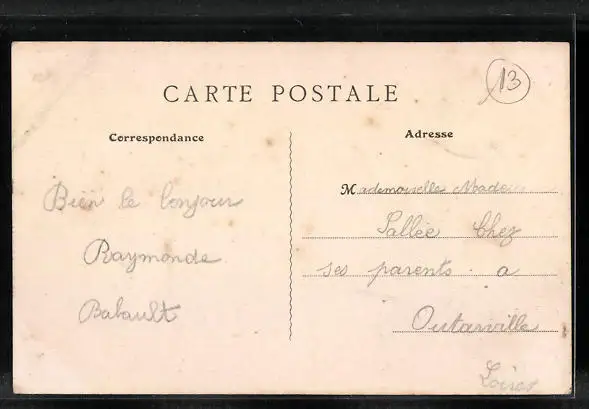 13
CARTE POSTALE
Correspondance
Bien le bonjour
Raymonde
Babault
Adresse
Mademoiselle
Sallée Chez
ses parents. a
Outarville
Loiret